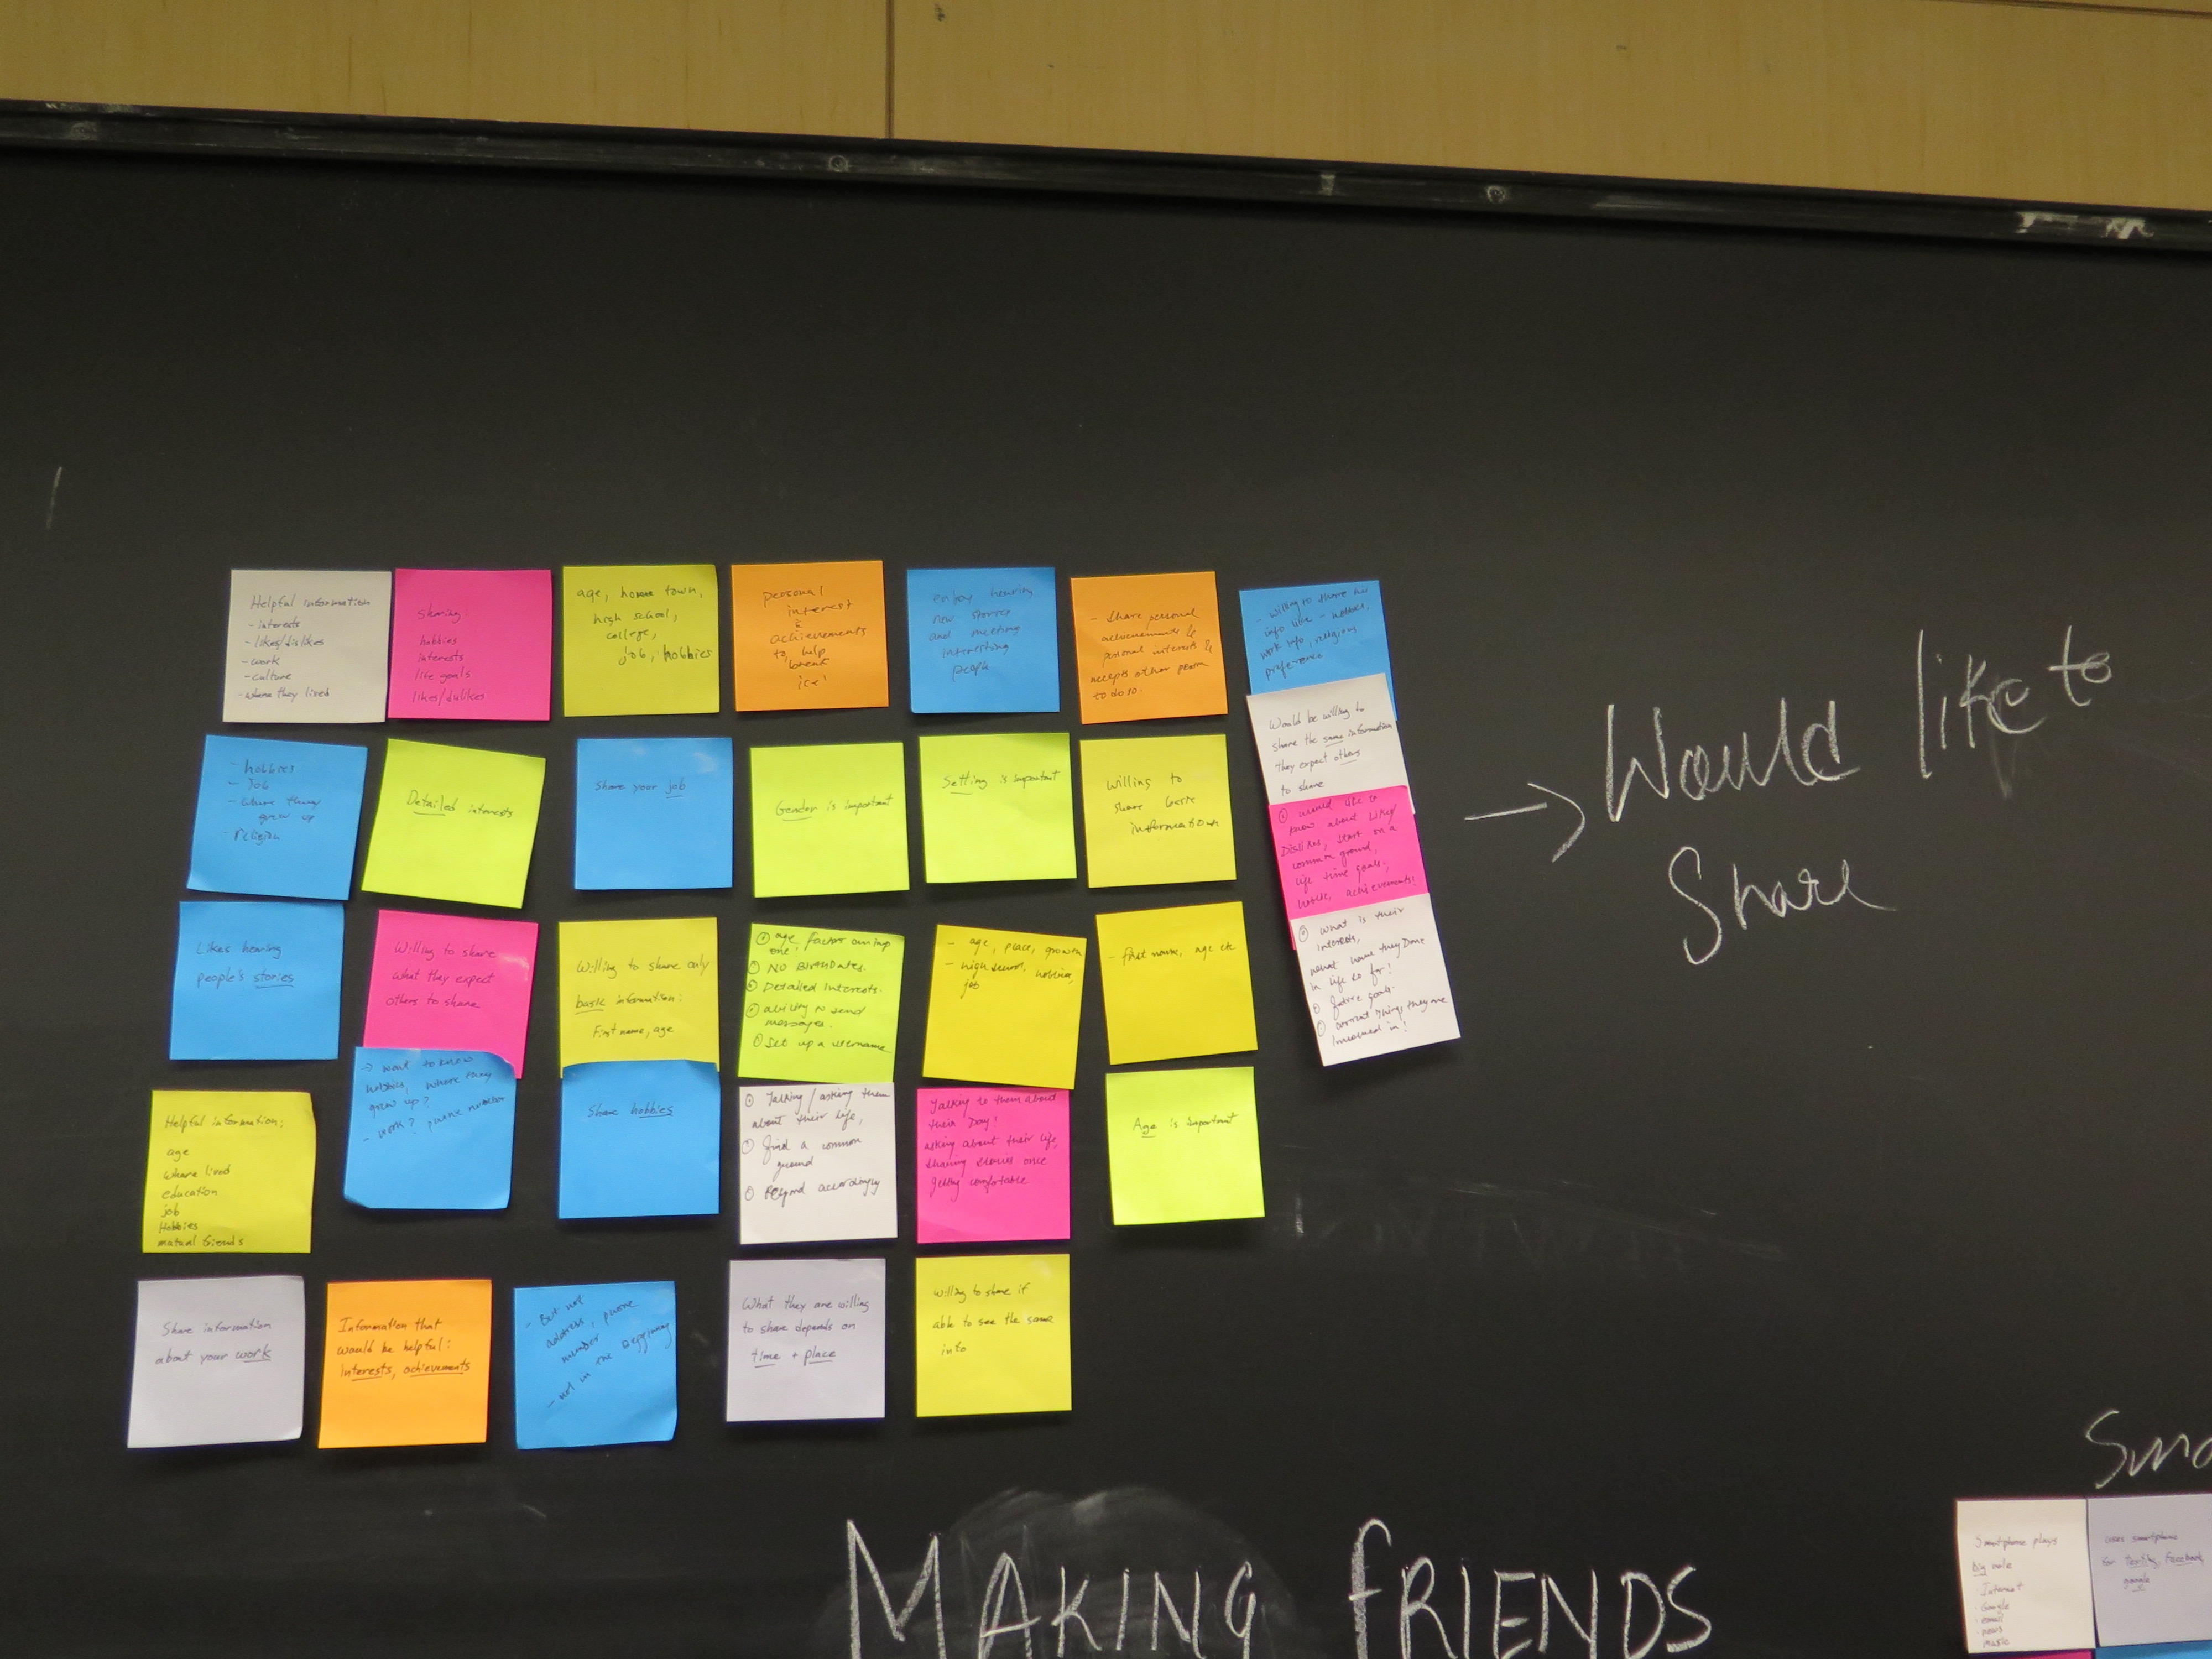 Helpful information
- interests
- likes/dislikes
- work
- culture
- where they lived
sharing:
hobbies
interests
life goals
likes/dislikes
age, home town,
high school,
college,
job, hobbies
personal
interest
&
achievements
to help
break
ice!
enjoy hearing
new stories
and meeting
interesting
people
- Share personal
achievements &
personal interests &
accepts other person
to do so.
- willing to share
info like - hobbies,
work info, religious
preference
Would be willing to
share the same information
they expect others
to share
would like to
know about likes/
Dislikes, start on a
common ground,
life time goals,
work, achievements!
what is their
interests,
what have they Done
in life so far!
future goals.
current things they are
involved in!
→ Would like to
Share
- hobbies
- Job
- where they
grew up
- religion
Detailed interests
Share your job
Gender is important
Setting is important
Willing to
share basic
information
Likes hearing
people's stories
Willing to share
what they expect
others to share
Willing to share only
basic information:
First name, age
age factor
one!
NO BirthDates.
Detailed Interests.
ability to send
messages.
Set up a username
- age, place, growth
- high school, hobbies,
job
- first name, age etc
Helpful information:
age
where lived
education
job
Hobbies
mutual friends
→ want to know
hobbies, where they
grew up?
- work? phone number
Share hobbies
Talking / asking them
about their life,
find a common
ground
Respond accordingly
Talking to them about
their Day!
asking about their life,
sharing stories once
getting comfortable
Age is important
Share information
about your work
Information that
would be helpful:
interests, achievements
- But not
address, phone
number
- not in the beginning
What they are willing
to share depends on
time + place
Willing to share if
able to see the same
info
MAKING FRIENDS
Smartphone plays
Big role
Internet
Google
email
news
music
uses smartphone
for texting, Facebook,
google